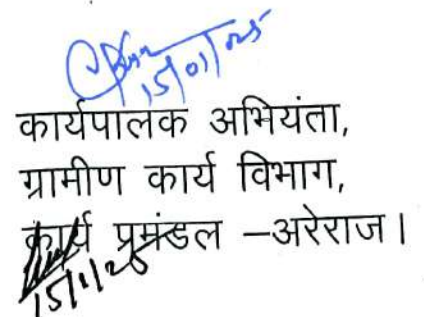 15/01/25
कार्यपालक अभियंता,
ग्रामीण कार्य विभाग,
कार्य प्रमंडल –अरेराज।
15/1/25